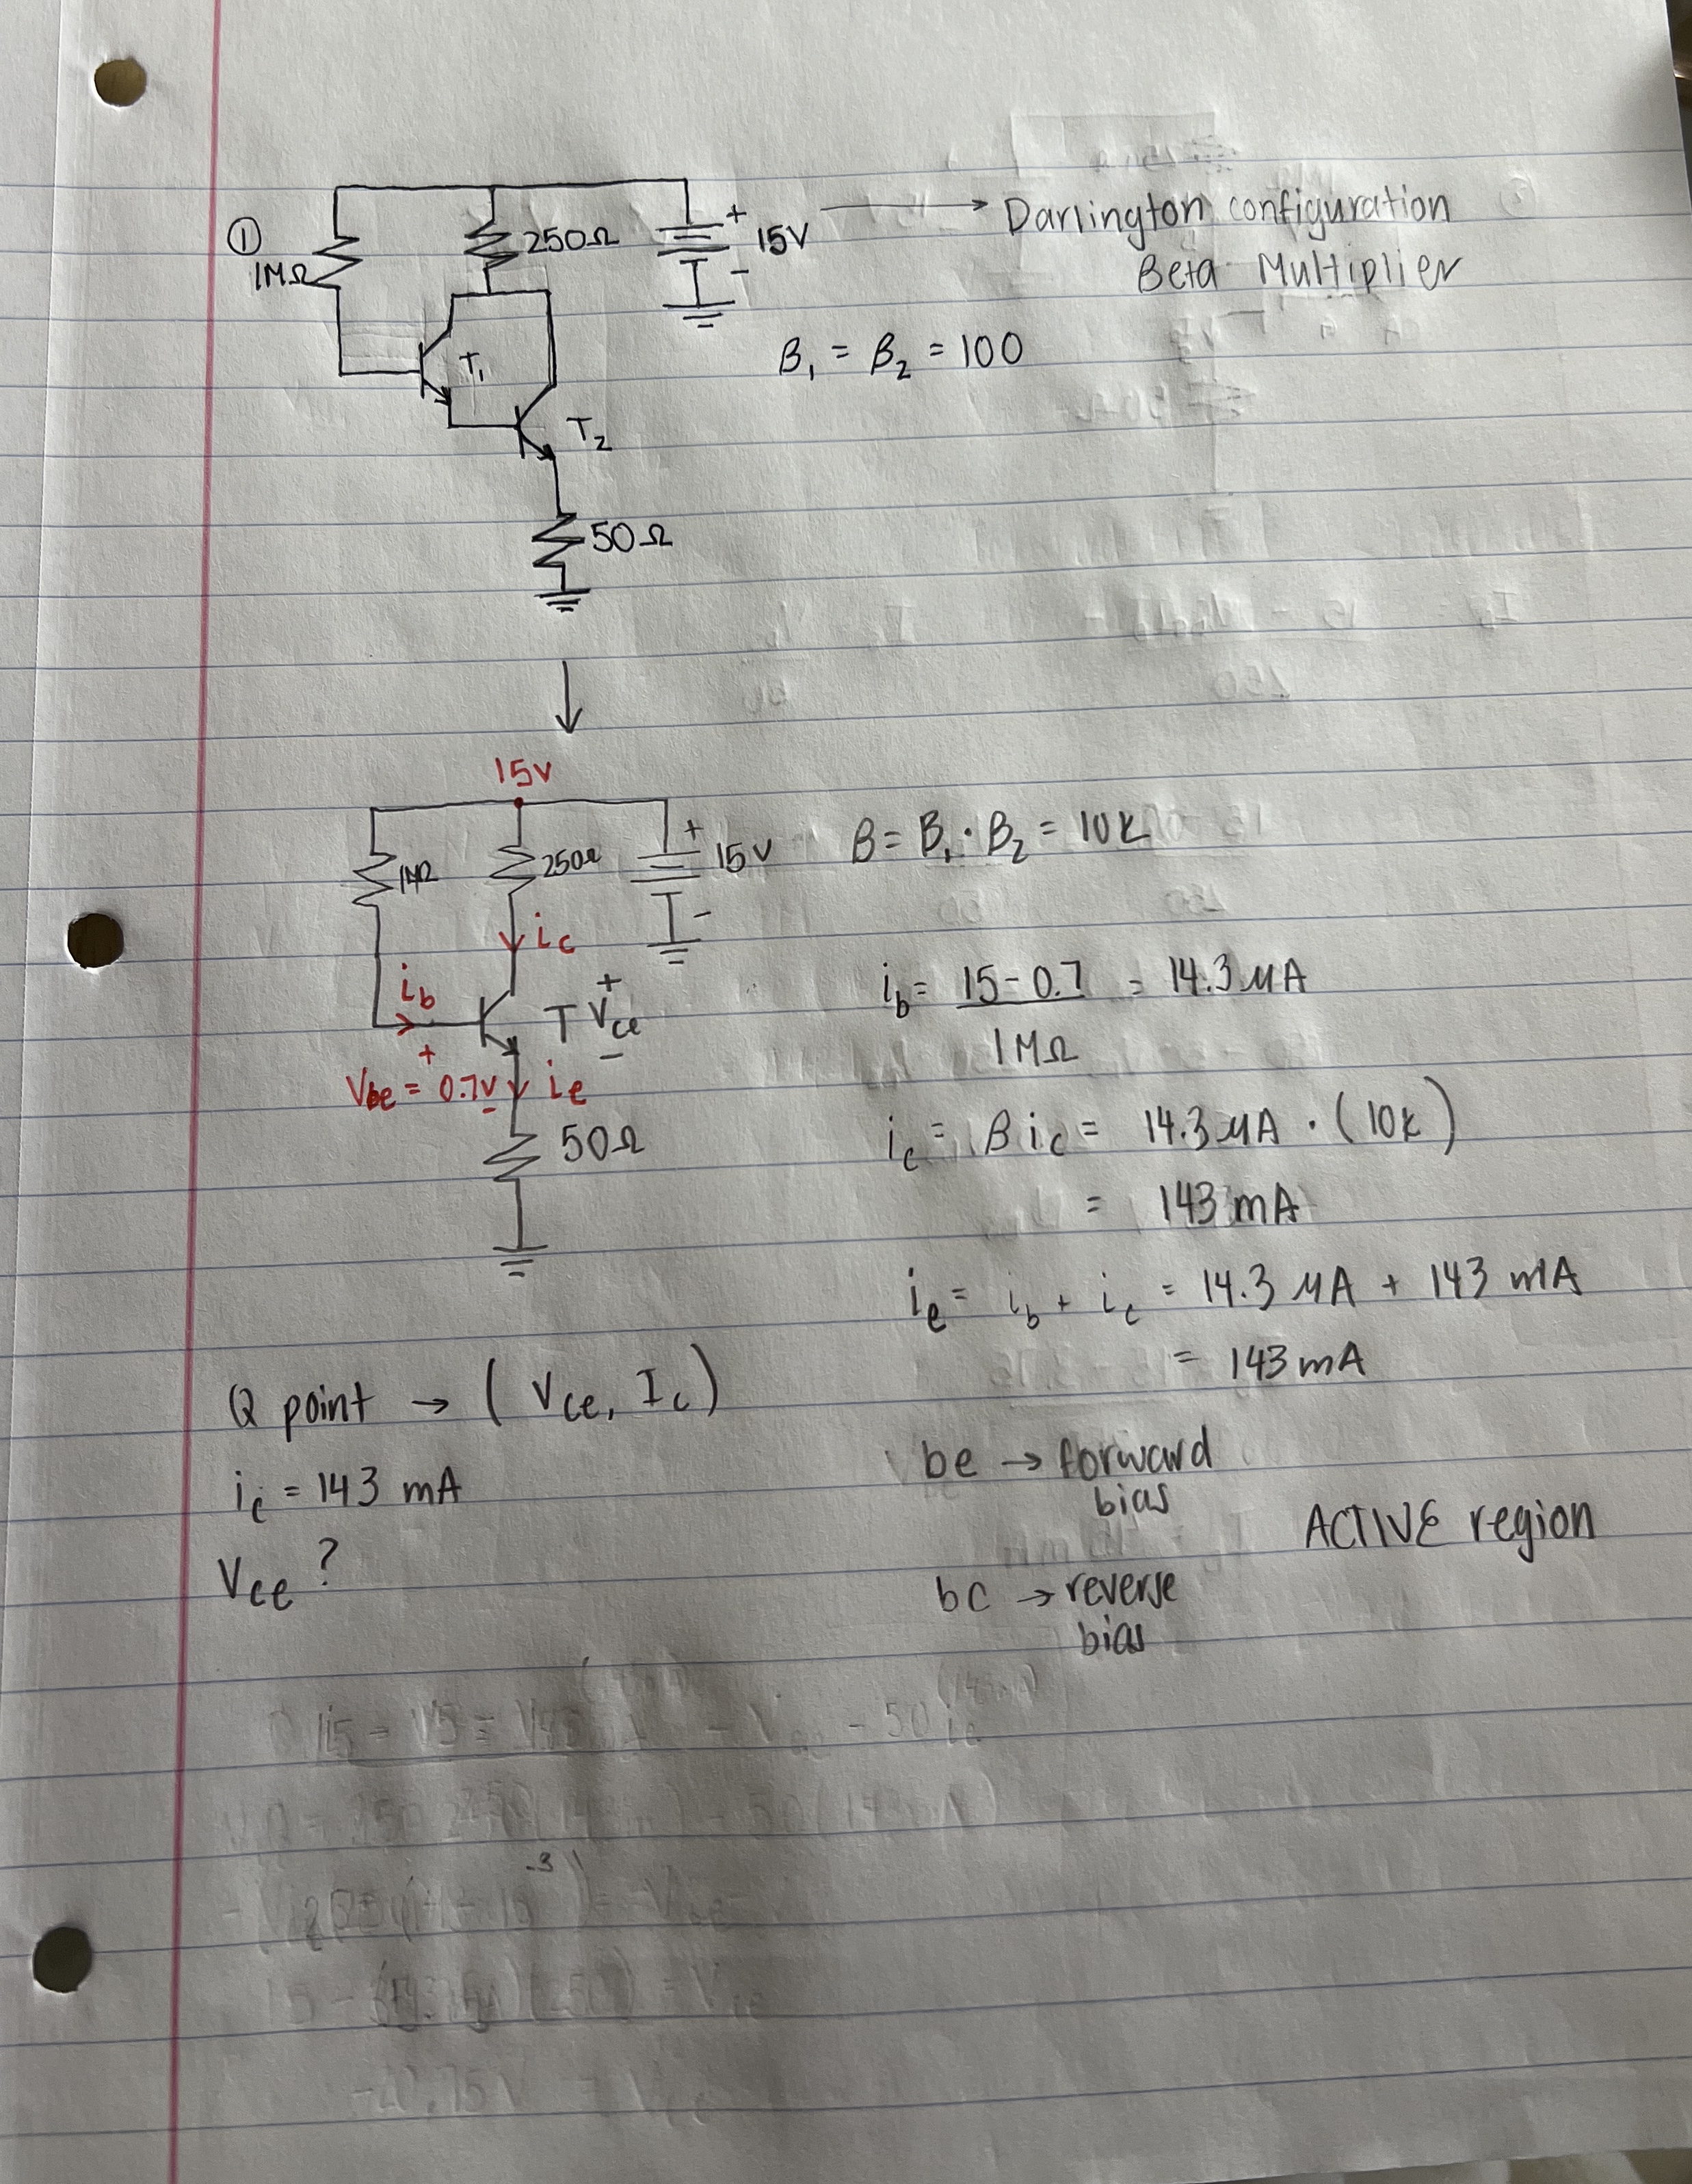 ①
1MΩ
250Ω
+
15V
-
→ Darlington configuration
Beta Multiplier
T₁
T₂
β₁ = β₂ = 100
50Ω
↓
15V
1MΩ
250Ω
+
15V
-
β = β₁ · β₂ = 10k
ic
ib
+
T Vce
-
+
Vbe = 0.7V
-
ie
50Ω
ib = 15-0.7 = 14.3 μA
1MΩ
ic = βic = 14.3 μA · (10k)
= 143 mA
ie = ib + ic = 14.3 μA + 143 mA
= 143 mA
Q point → (Vce, Ic)
ic = 143 mA
Vce ?
be → forward
bias
bc → reverse
bias
ACTIVE region